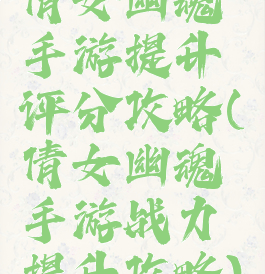 倩女幽魂
手游提升
评分攻略(
倩女幽魂
手游战力
提升攻略)